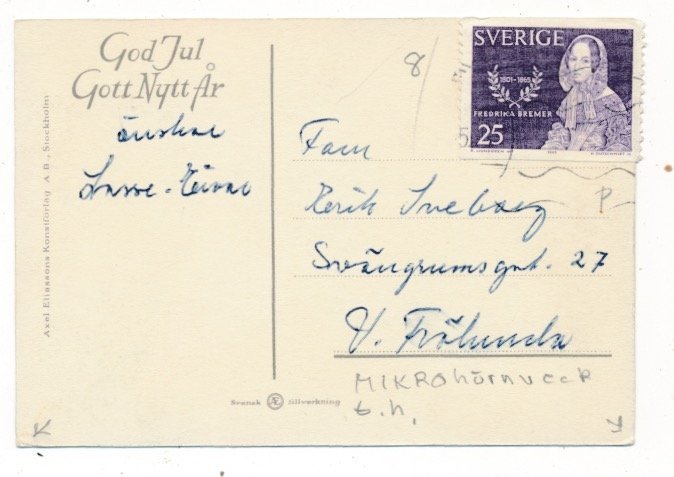 God Jul
Gott Nytt År
önskar
Lasse-
Axel Eliassons Konstförlag A.B., Stockholm
8
SVERIGE
1801-1865
FREDRIKA BREMER
25
Fam
Svängrumsgat. 27
V. Frölunda
P
MIKROhörnveck
t.h.
Svensk Æ tillverkning